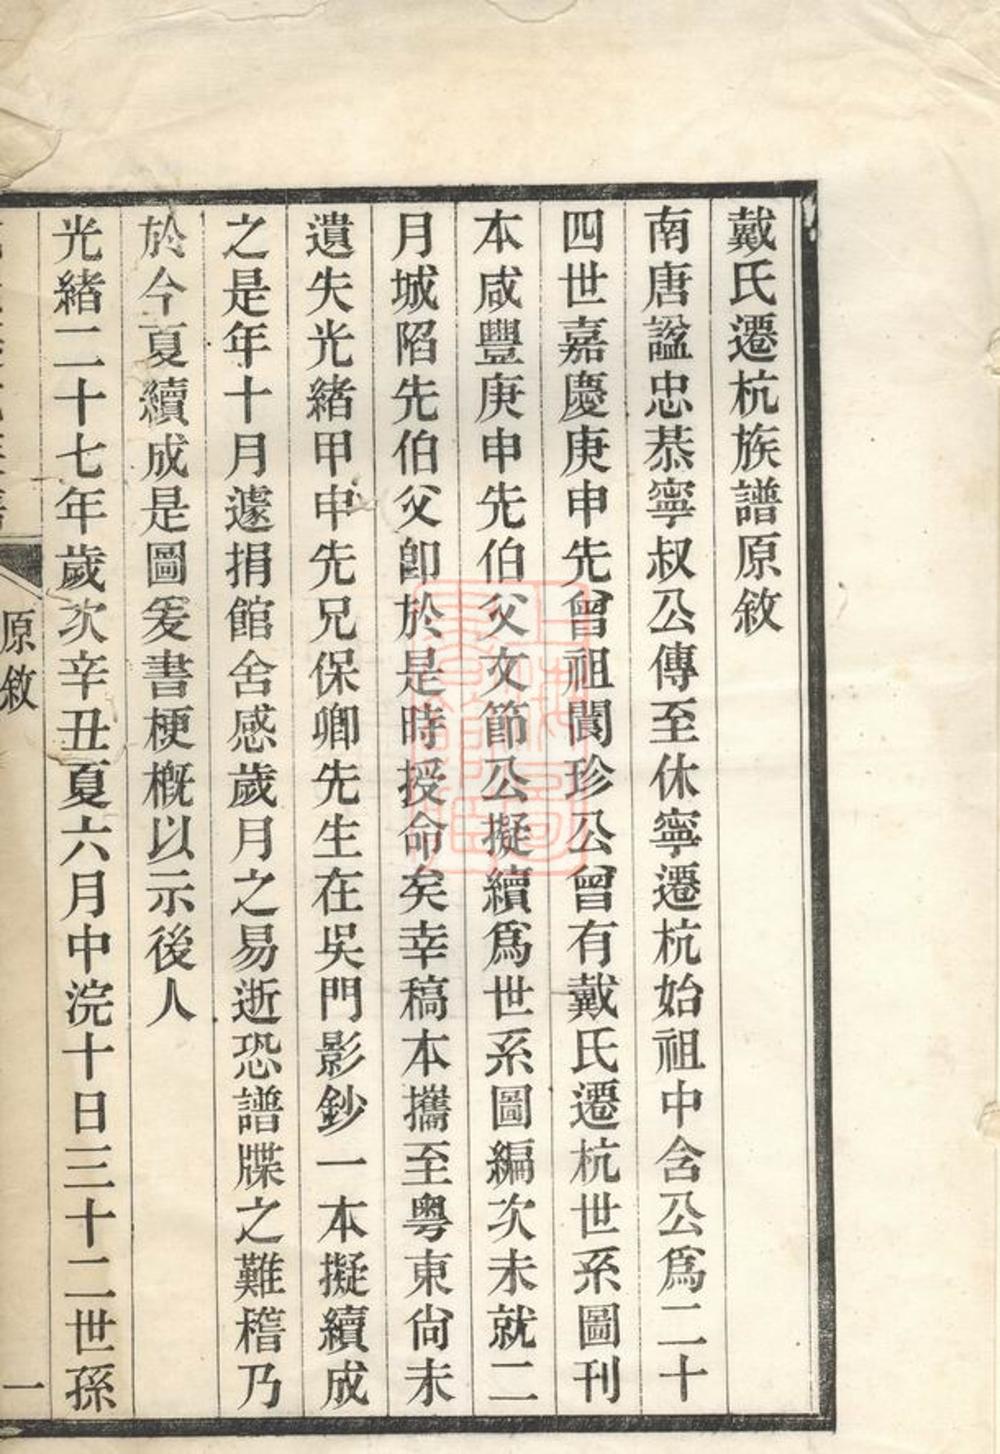 戴氏遷杭族譜原敘
南唐諡忠恭寧叔公傳至休寧遷杭始祖中含公爲二十
四世嘉慶庚申先曾祖閬珍公曾有戴氏遷杭世系圖刊
本咸豐庚申先伯父文節公擬續爲世系圖編次未就二
月城陷先伯父卽於是時授命矣幸稿本攜至粵東尙未
遺失光緒甲申先兄保卿先生在吳門影鈔一本擬續成
之是年十月遽捐館舍感歲月之易逝恐譜牒之難稽乃
於今夏續成是圖爰書梗概以示後人
光緒二十七年歲次辛丑夏六月中浣十日三十二世孫
原敘
一